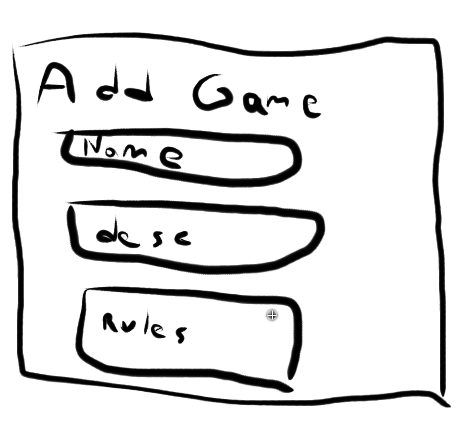 Add Game
Name
desc
Rules